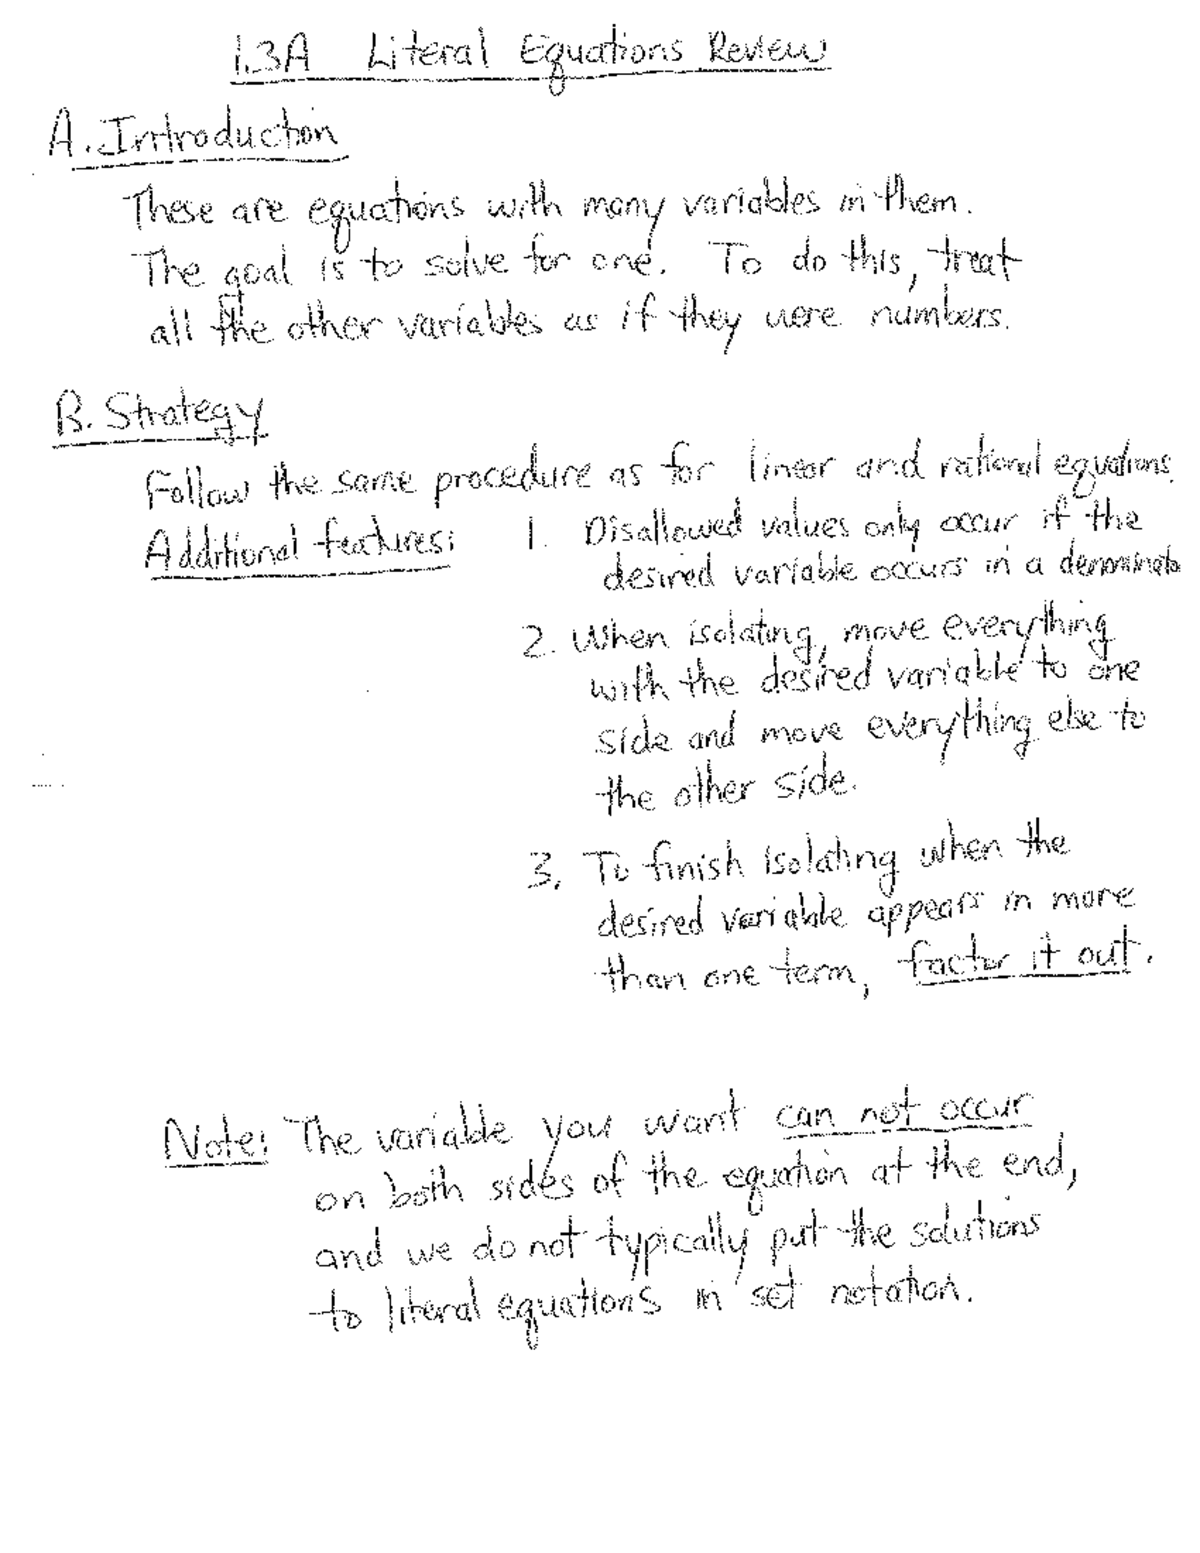 1.3A Literal Equations Review
A. Introduction
These are equations with many variables in them.
The goal is to solve for one. To do this, treat
all the other variables as if they were numbers.
B. Strategy
Follow the same procedure as for linear and rational equations.
Additional features: 1. Disallowed values only occur if the
desired variable occurs in a denominato
2. When isolating, move everything
with the desired variable to one
side and move everything else to
the other side.
3. To finish isolating when the
desired variable appears in more
than one term, factor it out.
Note: The variable you want can not occur
on both sides of the equation at the end,
and we do not typically put the solutions
to literal equations in set notation.